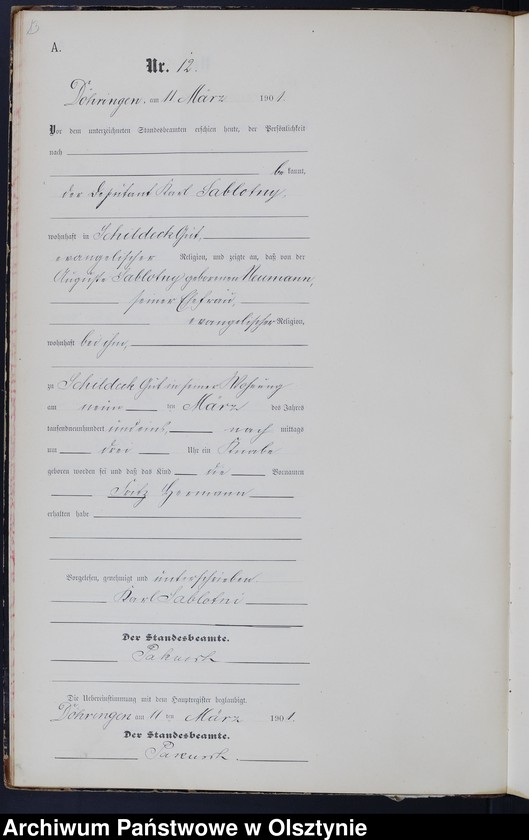 13
A.
Nr. 12.
Döhringen, am 11 März 1901.
Vor dem unterzeichneten Standesbeamten erschien heute, der Persönlichkeit
nach
be kannt,
der Deputant Karl Sablotny,
wohnhaft in Schildeck Gut,
evangelischer Religion, und zeigte an, daß von der
Auguste Sablotny geborenen Neumann,
seiner Ehefrau,
evangelischer Religion,
wohnhaft bei ihm,
zu Schildeck Gut in seiner Wohnung
am neun ten März des Jahres
tausendneunhundert und eins, nach mittags
um drei Uhr ein Knabe
geboren worden sei und daß das Kind die Vornamen
Fritz Hermann
erhalten habe
Vorgelesen, genehmigt und unterschrieben
Karl Sablotni
Der Standesbeamte.
Die Uebereinstimmung mit dem Hauptregister beglaubigt.
Döhringen am 11 ten März 1901.
Der Standesbeamte.
Archiwum Państwowe w Olsztynie